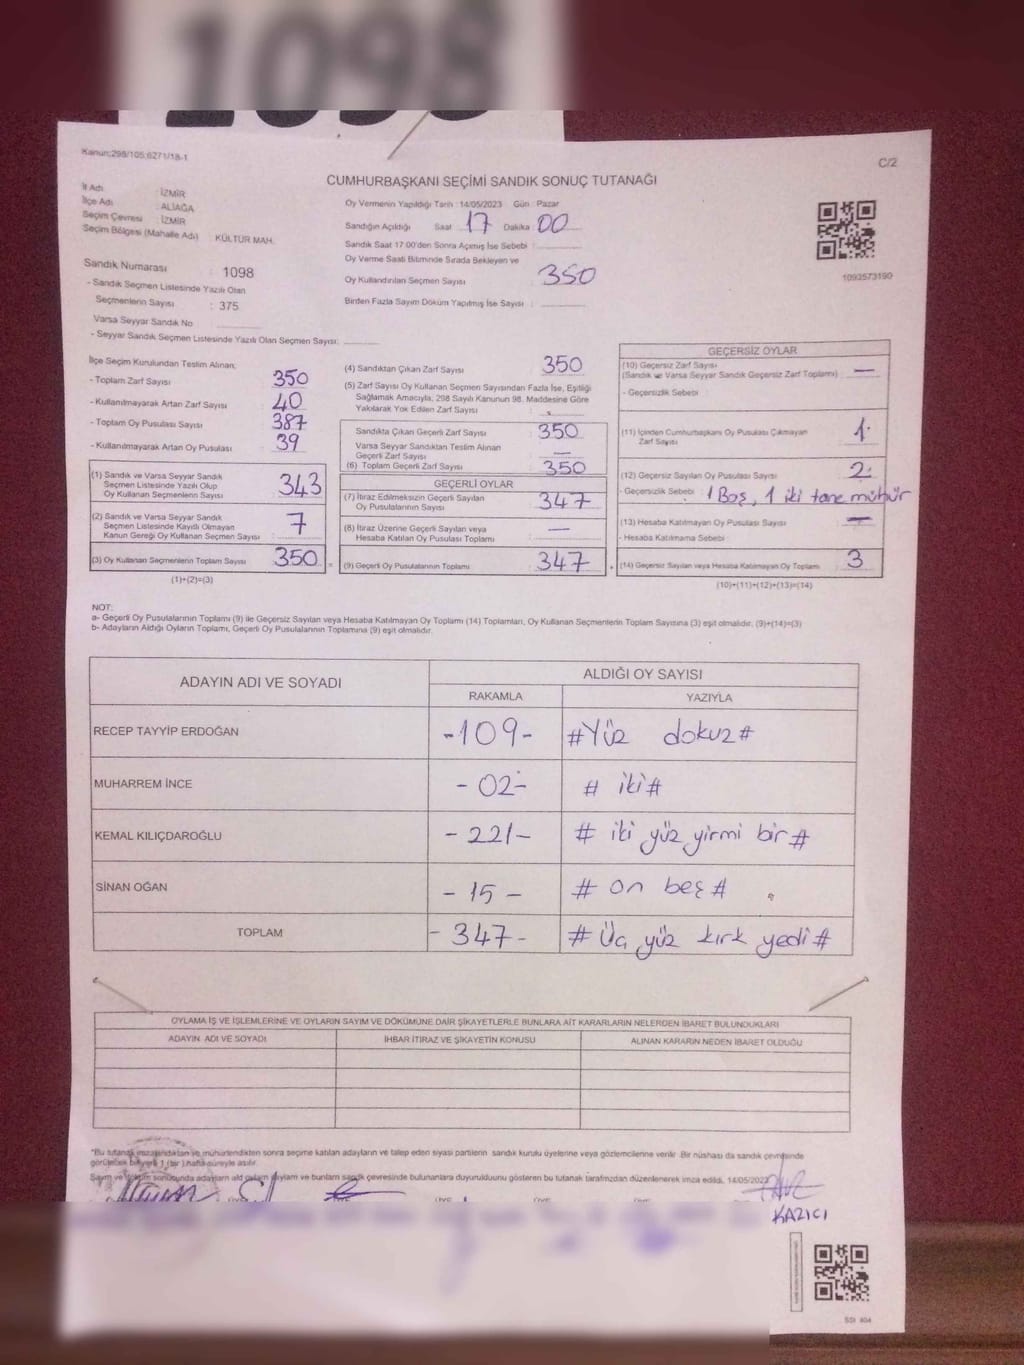 1098
Kanun:298/105,6271/18-1
C/2
CUMHURBAŞKANI SEÇİMİ SANDIK SONUÇ TUTANAĞI
İl Adı : İZMİR
İlçe Adı : ALİAĞA
Seçim Çevresi : İZMİR
Seçim Bölgesi (Mahalle Adı) : KÜLTÜR MAH.
Sandık Numarası : 1098
- Sandık Seçmen Listesinde Yazılı Olan
Seçmenlerin Sayısı : 375
Varsa Seyyar Sandık No
- Seyyar Sandık Seçmen Listesinde Yazılı Olan Seçmen Sayısı:
Oy Vermenin Yapıldığı Tarih : 14/05/2023 Gün : Pazar
Sandığın Açıldığı Saat 17 Dakika 00
Sandık Saat 17.00'den Sonra Açılmış İse Sebebi :
Oy Verme Saati Bitiminde Sırada Bekleyen ve
Oy Kullandırılan Seçmen Sayısı : 350
Birden Fazla Sayım Döküm Yapılmış İse Sayısı :
1093573190
İlçe Seçim Kurulundan Teslim Alınan;
- Toplam Zarf Sayısı : 350
- Kullanılmayarak Artan Zarf Sayısı : 40
- Toplam Oy Pusulası Sayısı : 387
- Kullanılmayarak Artan Oy Pusulası : 39
(1) Sandık ve Varsa Seyyar Sandık
Seçmen Listesinde Yazılı Olup
Oy Kullanan Seçmenlerin Sayısı : 343
(2) Sandık ve Varsa Seyyar Sandık
Seçmen Listesinde Kayıtlı Olmayan
Kanun Gereği Oy Kullanan Seçmen Sayısı : 7
(3) Oy Kullanan Seçmenlerin Toplam Sayısı : 350
(1)+(2)=(3)
(4) Sandıktan Çıkan Zarf Sayısı : 350
(5) Zarf Sayısı Oy Kullanan Seçmen Sayısından Fazla İse, Eşitliği
Sağlamak Amacıyla, 298 Sayılı Kanunun 98. Maddesine Göre
Yakılarak Yok Edilen Zarf Sayısı :
Sandıkta Çıkan Geçerli Zarf Sayısı : 350
Varsa Seyyar Sandıktan Teslim Alınan
Geçerli Zarf Sayısı : —
(6) Toplam Geçerli Zarf Sayısı : 350
GEÇERLİ OYLAR
(7) İtiraz Edilmeksizin Geçerli Sayılan
Oy Pusulalarının Sayısı : 347
(8) İtiraz Üzerine Geçerli Sayılan veya
Hesaba Katılan Oy Pusulası Toplamı : —
(9) Geçerli Oy Pusulalarının Toplamı : 347
GEÇERSİZ OYLAR
(10) Geçersiz Zarf Sayısı
(Sandık ve Varsa Seyyar Sandık Geçersiz Zarf Toplamı) : —
- Geçersizlik Sebebi :
(11) İçinden Cumhurbaşkanı Oy Pusulası Çıkmayan
Zarf Sayısı : 1
(12) Geçersiz Sayılan Oy Pusulası Sayısı : 2
- Geçersizlik Sebebi : 1 Boş, 1 iki tane mühür
(13) Hesaba Katılmayan Oy Pusulası Sayısı : —
- Hesaba Katılmama Sebebi :
(14) Geçersiz Sayılan veya Hesaba Katılmayan Oy Toplamı : 3
(10)+(11)+(12)+(13)=(14)
NOT:
a- Geçerli Oy Pusulalarının Toplamı (9) ile Geçersiz Sayılan veya Hesaba Katılmayan Oy Toplamı (14) Toplamları, Oy Kullanan Seçmenlerin Toplam Sayısına (3) eşit olmalıdır. (9)+(14)=(3)
b- Adayların Aldığı Oyların Toplamı, Geçerli Oy Pusulalarının Toplamına (9) eşit olmalıdır.
ADAYIN ADI VE SOYADI ALDIĞI OY SAYISI
RAKAMLA YAZIYLA
RECEP TAYYİP ERDOĞAN -109- #Yüz dokuz#
MUHARREM İNCE -02- # iki#
KEMAL KILIÇDAROĞLU -221- # iki yüz yirmi bir#
SİNAN OĞAN -15- # on beş#
TOPLAM -347- # Üç yüz kırk yedi#
OYLAMA İŞ VE İŞLEMLERİNE VE OYLARIN SAYIM VE DÖKÜMÜNE DAİR ŞİKAYETLERLE BUNLARA AİT KARARLARIN NELERDEN İBARET BULUNDUKLARI
ADAYIN ADI VE SOYADI İHBAR İTİRAZ VE ŞİKAYETİN KONUSU ALINAN KARARIN NEDEN İBARET OLDUĞU
*Bu tutanak imzalandıktan ve mühürlendikten sonra seçime katılan adayların ve talep eden siyasi partilerin sandık kurulu üyelerine veya gözlemcilerine verilir. Bir nüshası da sandık çevresinde
görülebilecek bir yere 1 (bir) hafta süreyle asılır.
Sayım ve döküm sonucunda adayların aldığı oyların sayım ve bunların sandık çevresinde bulunanlara duyurulduğunu gösteren bu tutanak tarafımızdan düzenlenerek imza edildi. 14/05/2023
KAZICI